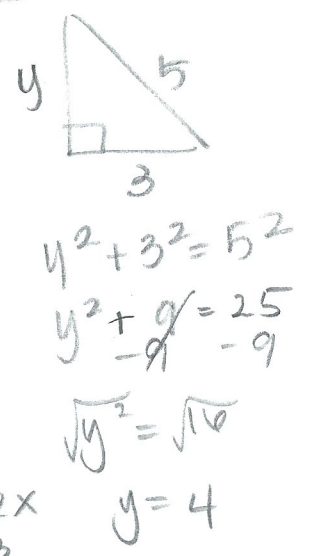 y 5
3
y² + 3² = 5²
y² + 9 = 25
-9 -9
√y² = √16
x
y = 4